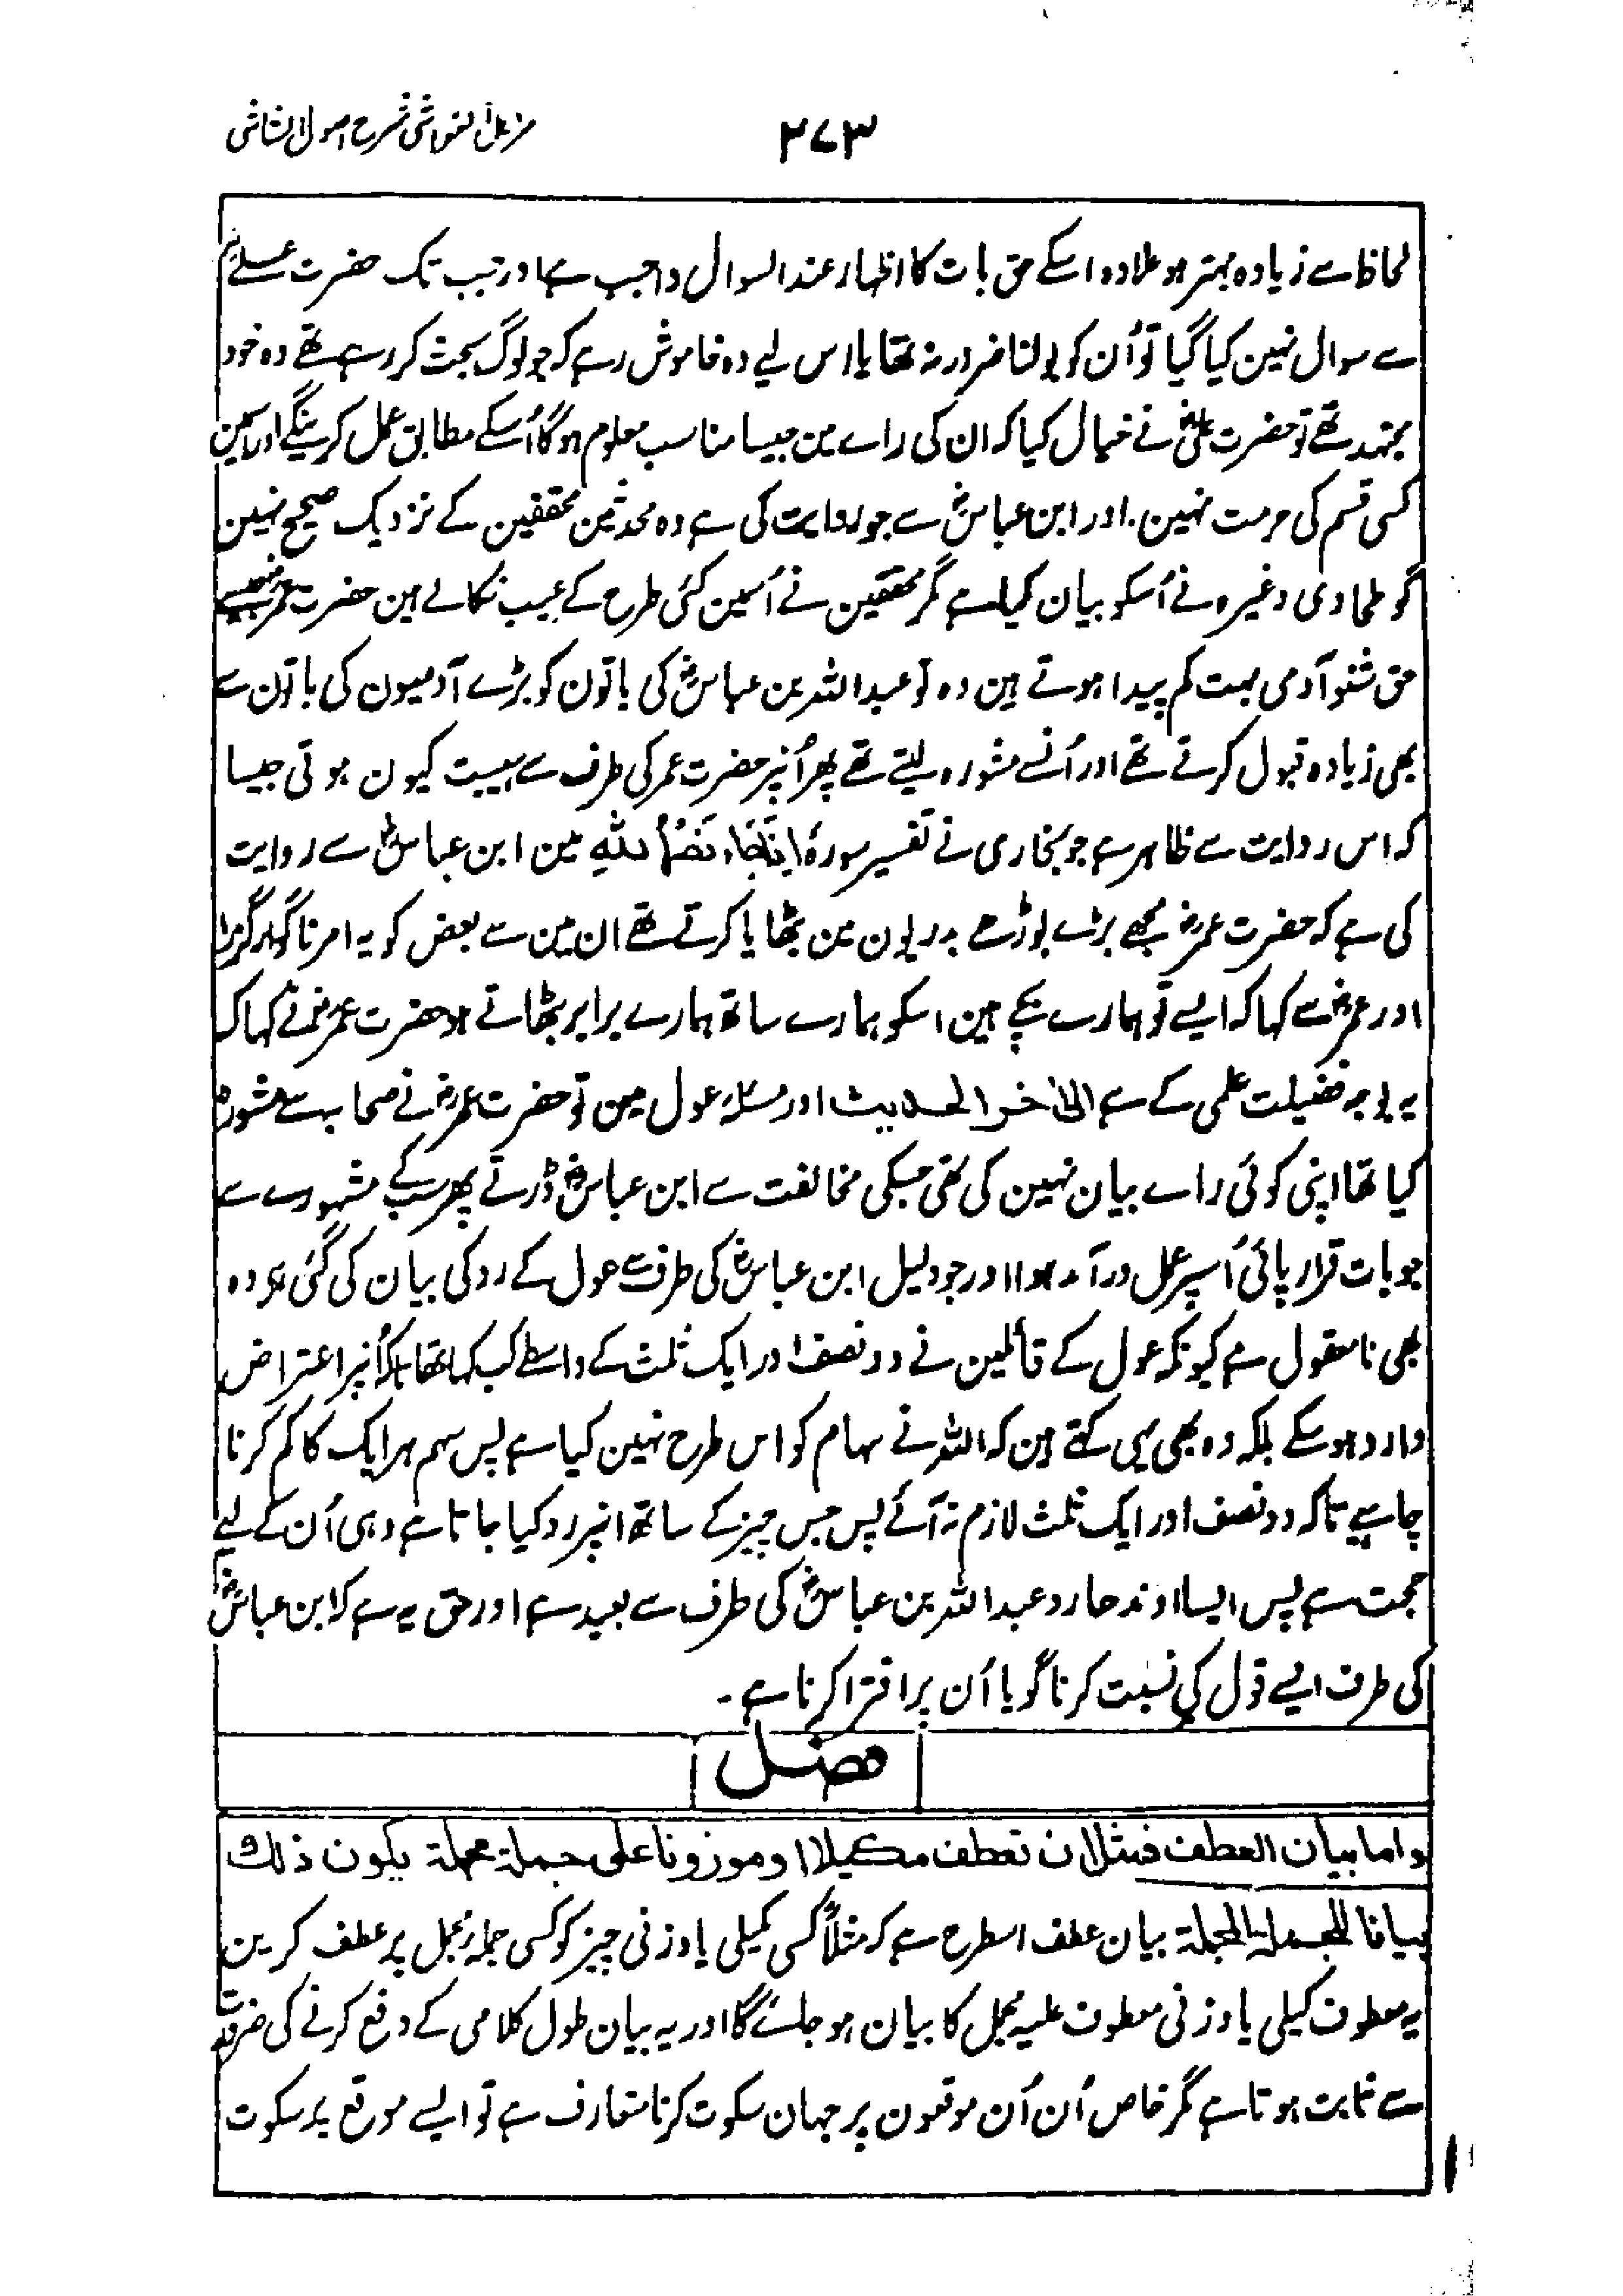 مزیل الغواشی شرح اصول الشاشی
۲۷۳
لحاظ سے زیادہ بہتر ہو علاوہ اسکے حق بات کا اظہار عند السوال واجب ہے اور جب تک حضرت علیؓ
سے سوال نہین کیا گیا تو اُن کو بولنا ضرور نہ تھا یا اس لیے وہ خاموش رہے کہ جو لوگ بحث کر رہے تھے وہ خود
مجتہد تھے تو حضرت علیؓ نے خیال کیا کہ ان کی راے مین جیسا مناسب معلوم ہوگا اُسکے مطابق عمل کرینگے اور اسمین
کسی قسم کی حرمت نہین۔ اور ابن عباسؓ سے جو روایت کی ہے وہ محدثین محققین کے نزدیک صحیح نہین
گو طحاوی وغیرہ نے اُسکو بیان کیا ہے مگر محققین نے اُسمین کئی طرح کے عیب نکالے ہین حضرت عمرؓ جیسے
حق شنو آدمی بہت کم پیدا ہوتے ہین وہ تو عبد اللہ بن عباسؓ کی باتون کو بڑے آدمیون کی باتون سے
بھی زیادہ قبول کرتے تھے اور اُنسے مشورہ لیتے تھے پھر اُنپر حضرت عمر کی طرف سے ہیبت کیون ہوتی جیسا
کہ اس روایت سے ظاہر ہے جو بخاری نے تفسیر سورۂ اِذَا جَاءَ نَصْرُ اللهِ مین ابن عباسؓ سے روایت
کی ہے کہ حضرت عمرؓ مجھے بڑے بوڑھے بدریون مین بٹھایا کرتے تھے ان مین سے بعض کو یہ امر ناگوار گزرا
اور عمرؓ سے کہا کہ ایسے تو ہمارے بچے ہین اسکو ہمارے ساتھ ہمارے برابر بٹھاتے ہو حضرت عمرؓ نے کہا کہ
یہ بوجہ فضیلت علمی کے ہے الیٰ اخر الحدیث اور مسئلۂ عول مین تو حضرت عمرؓ نے صحابہ سے مشورہ
کیا تھا اپنی کوئی راے بیان نہین کی تھی جسکی مخالفت سے ابن عباسؓ ڈرتے پھر سب کے مشورے سے
جو بات قرار پائی اُسپر عمل درآمد ہوا اور جو دلیل ابن عباسؓ کی طرف سے عول کے رد کی بیان کی گئی ہے وہ
بھی نامعقول ہے کیونکہ عول کے قائلین نے دو نصف اور ایک ثلث کے واسطے کب کہا تھا تاکہ اُنپر اعتراض
وارد ہو سکے بلکہ وہ بھی یہی کہتے ہین کہ اللہ نے سہام کو اس طرح نہین کیا ہے پس سہم ہر ایک کا کم کرنا
چاہیے تاکہ دو نصف اور ایک ثلث لازم نہ آئے پس جس چیز کے ساتھ انپر رد کیا جاتا ہے وہی اُن کے لیے
حجت ہے پس ایسا اوندھا رد عبد اللہ بن عباسؓ کی طرف سے بعید ہے اور حق یہ ہے کہ ابن عباسؓ
کی طرف ایسے قول کی نسبت کرنا گویا اُن پر افترا کرنا ہے۔
فصل
واما بیان العطف فمثل ان تعطف مکیلا او موزونا علی جملۃ مجملۃ یکون ذلك
بیانا للجملۃ المجملۃ بیان عطف اسطرح ہے کہ مثلاً کسی کیلی یا وزنی چیز کو کسی جملۂ مجمل پر عطف کرین
یہ معطوف کیلی یا وزنی معطوف علیہ مجمل کا بیان ہو جائے گا اور یہ بیان طول کلامی کے دفع کرنے کی ضرورت
سے ثابت ہوتا ہے مگر خاص اُن اُن موقعون پر جہان سکوت کرنا متعارف ہے تو ایسے موقع پر سکوت